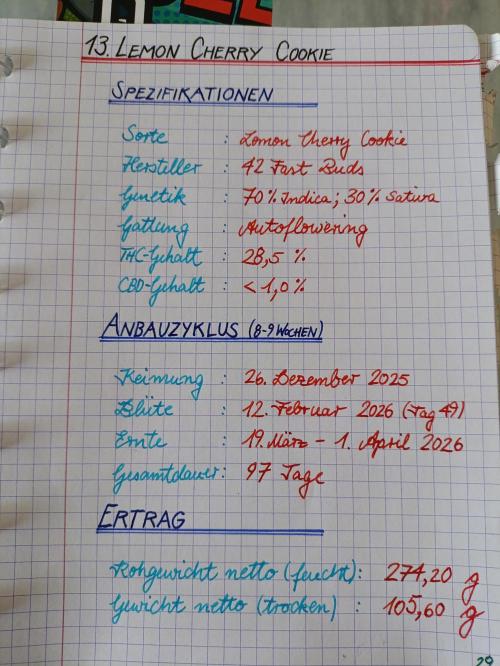 13. LEMON CHERRY COOKIE
SPEZIFIKATIONEN
Sorte : Lemon Cherry Cookie
Hersteller : 42 Fast Buds
Genetik : 70% Indica; 30% Sativa
Gattung : Autoflowering
THC-Gehalt : 28,5 %
CBD-Gehalt : < 1,0 %
ANBAUZYKLUS (8-9 WOCHEN)
Keimung : 26. Dezember 2025
Blüte : 12. Februar 2026 (Tag 49)
Ernte : 19. März - 1. April 2026
Gesamtdauer: 97 Tage
ERTRAG
Rohgewicht netto (feucht): 274,20 g
Gewicht netto (trocken) : 105,60 g